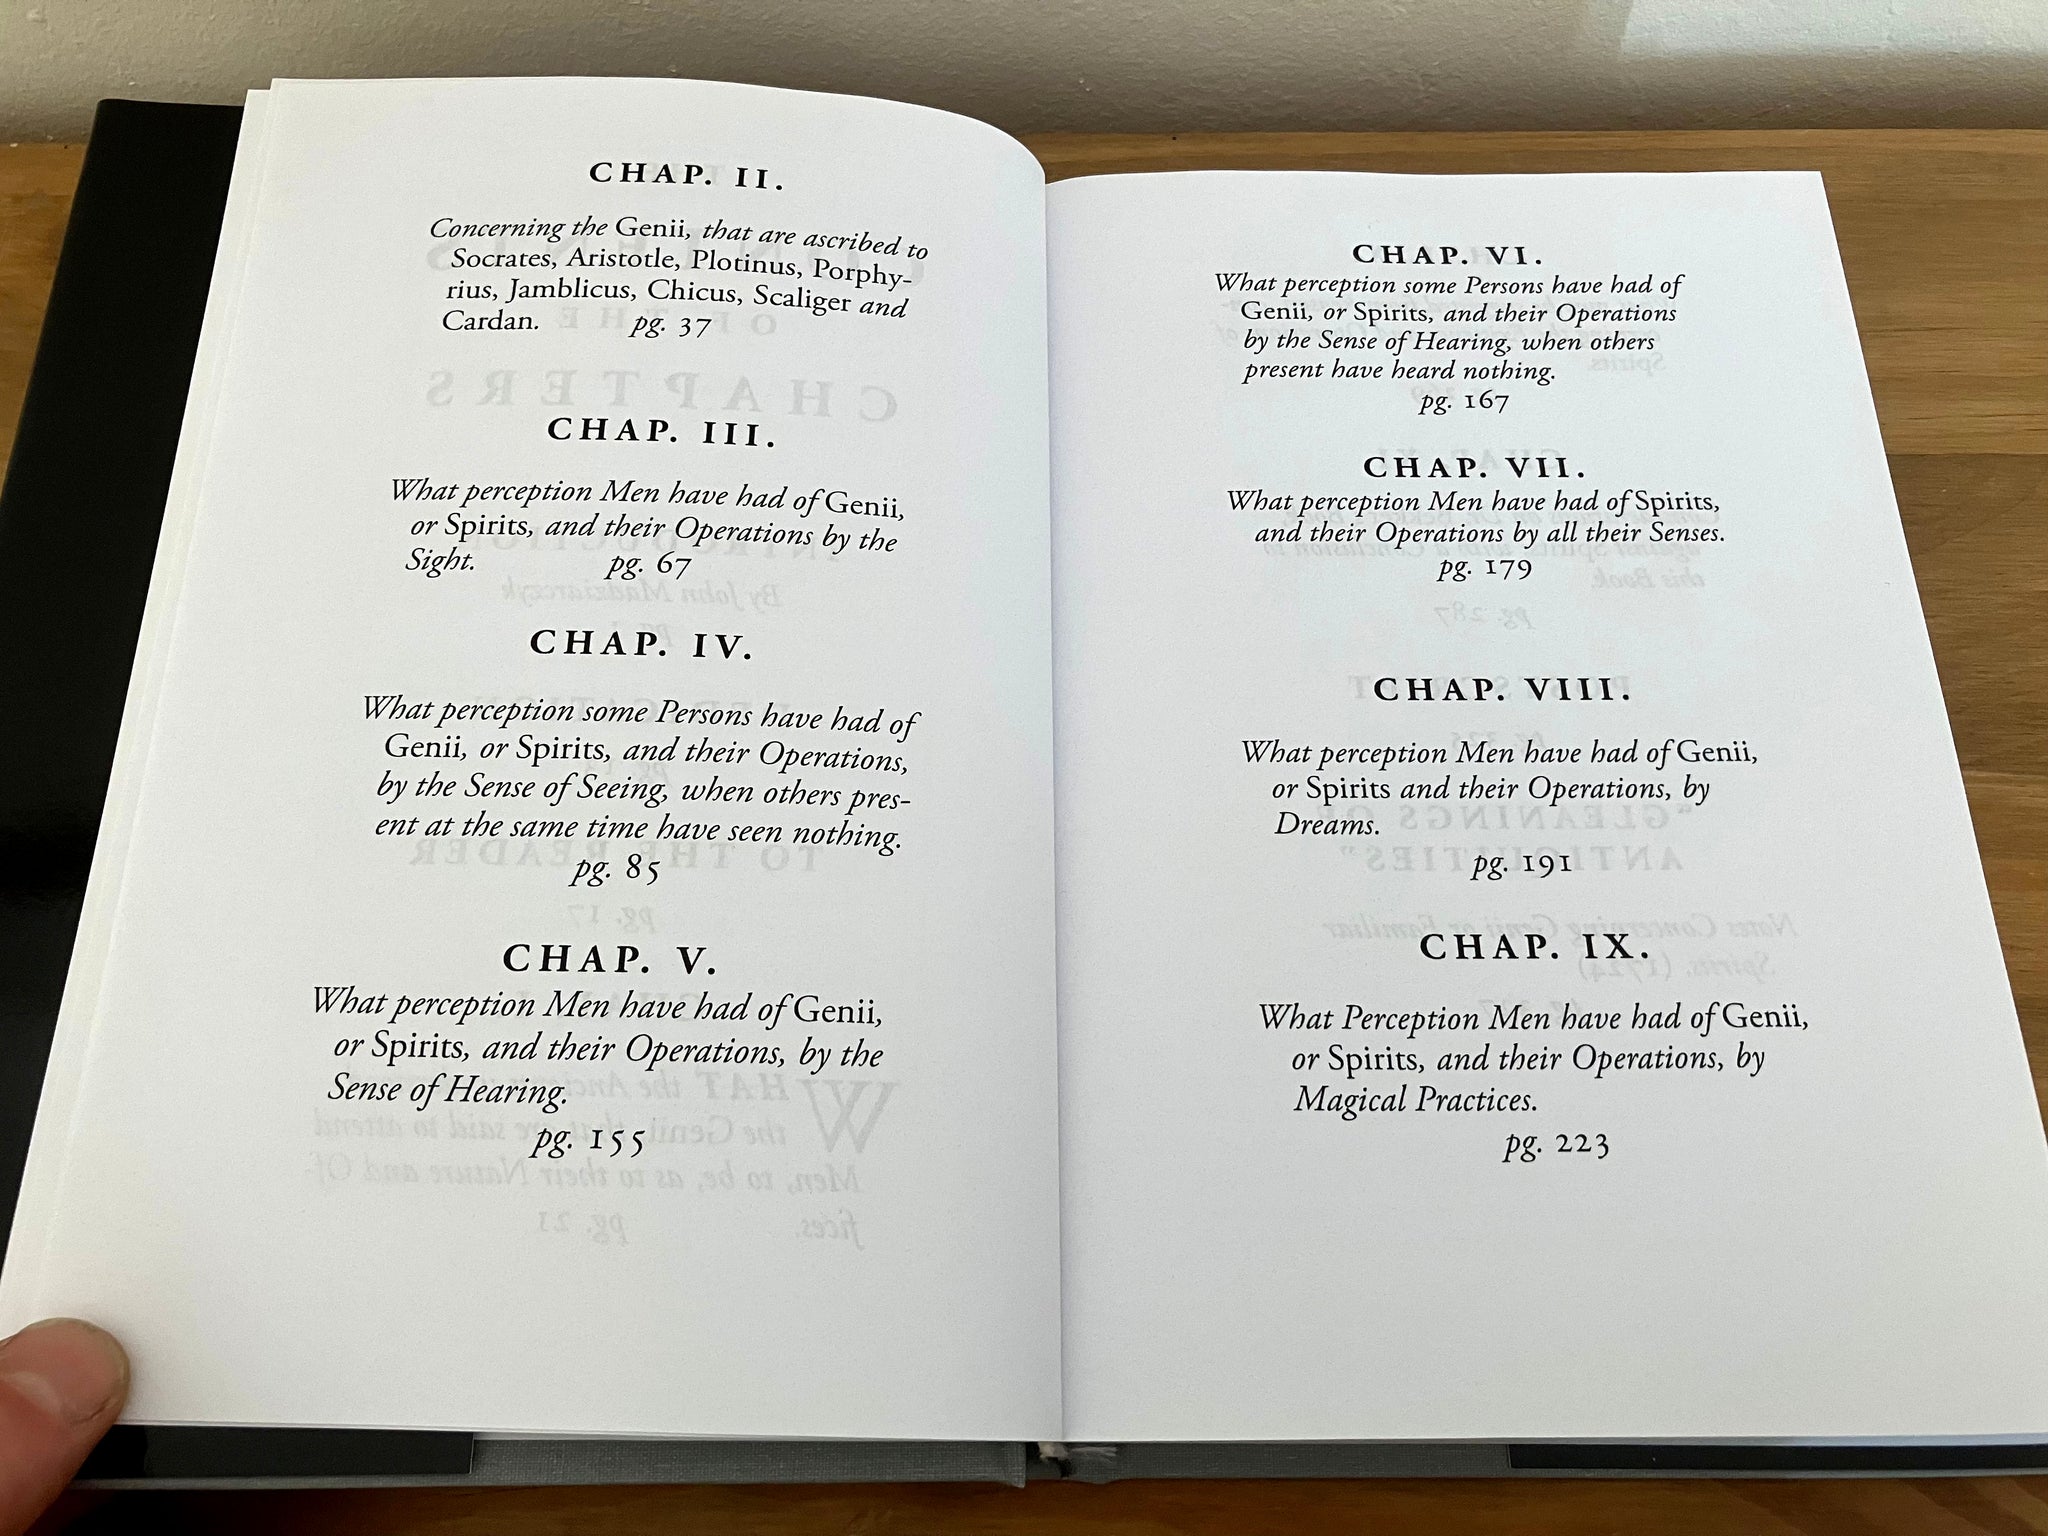 CHAP. II.
Concerning the Genii, that are ascribed to
Socrates, Aristotle, Plotinus, Porphy-
rius, Jamblicus, Chicus, Scaliger and
Cardan. pg. 37
CHAP. III.
What perception Men have had of Genii,
or Spirits, and their Operations by the
Sight. pg. 67
CHAP. IV.
What perception some Persons have had of
Genii, or Spirits, and their Operations,
by the Sense of Seeing, when others pres-
ent at the same time have seen nothing.
pg. 85
CHAP. V.
What perception Men have had of Genii,
or Spirits, and their Operations, by the
Sense of Hearing.
pg. 155
CHAP. VI.
What perception some Persons have had of
Genii, or Spirits, and their Operations
by the Sense of Hearing, when others
present have heard nothing.
pg. 167
CHAP. VII.
What perception Men have had of Spirits,
and their Operations by all their Senses.
pg. 179
CHAP. VIII.
What perception Men have had of Genii,
or Spirits and their Operations, by
Dreams.
pg. 191
CHAP. IX.
What Perception Men have had of Genii,
or Spirits, and their Operations, by
Magical Practices.
pg. 223